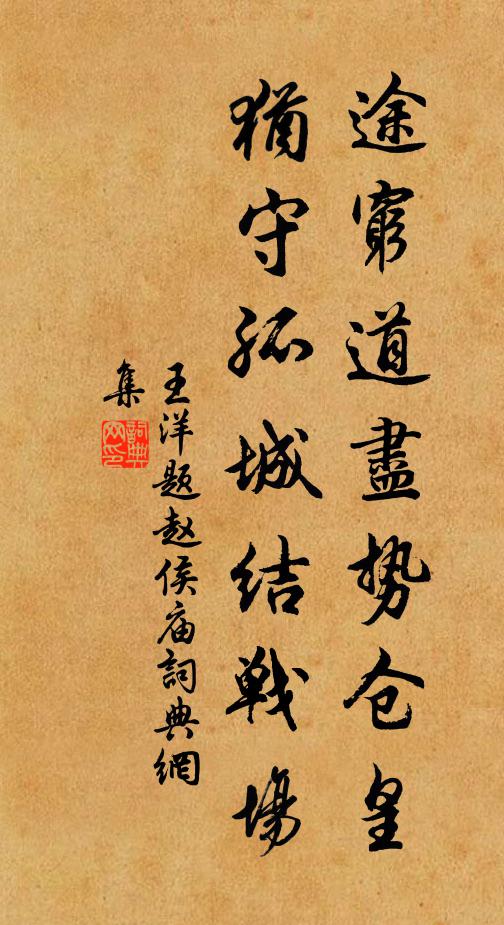 途窮道盡势仓皇
猶守孤城结戦場
王洋题赵侯庙詞典網
集
詞典网印